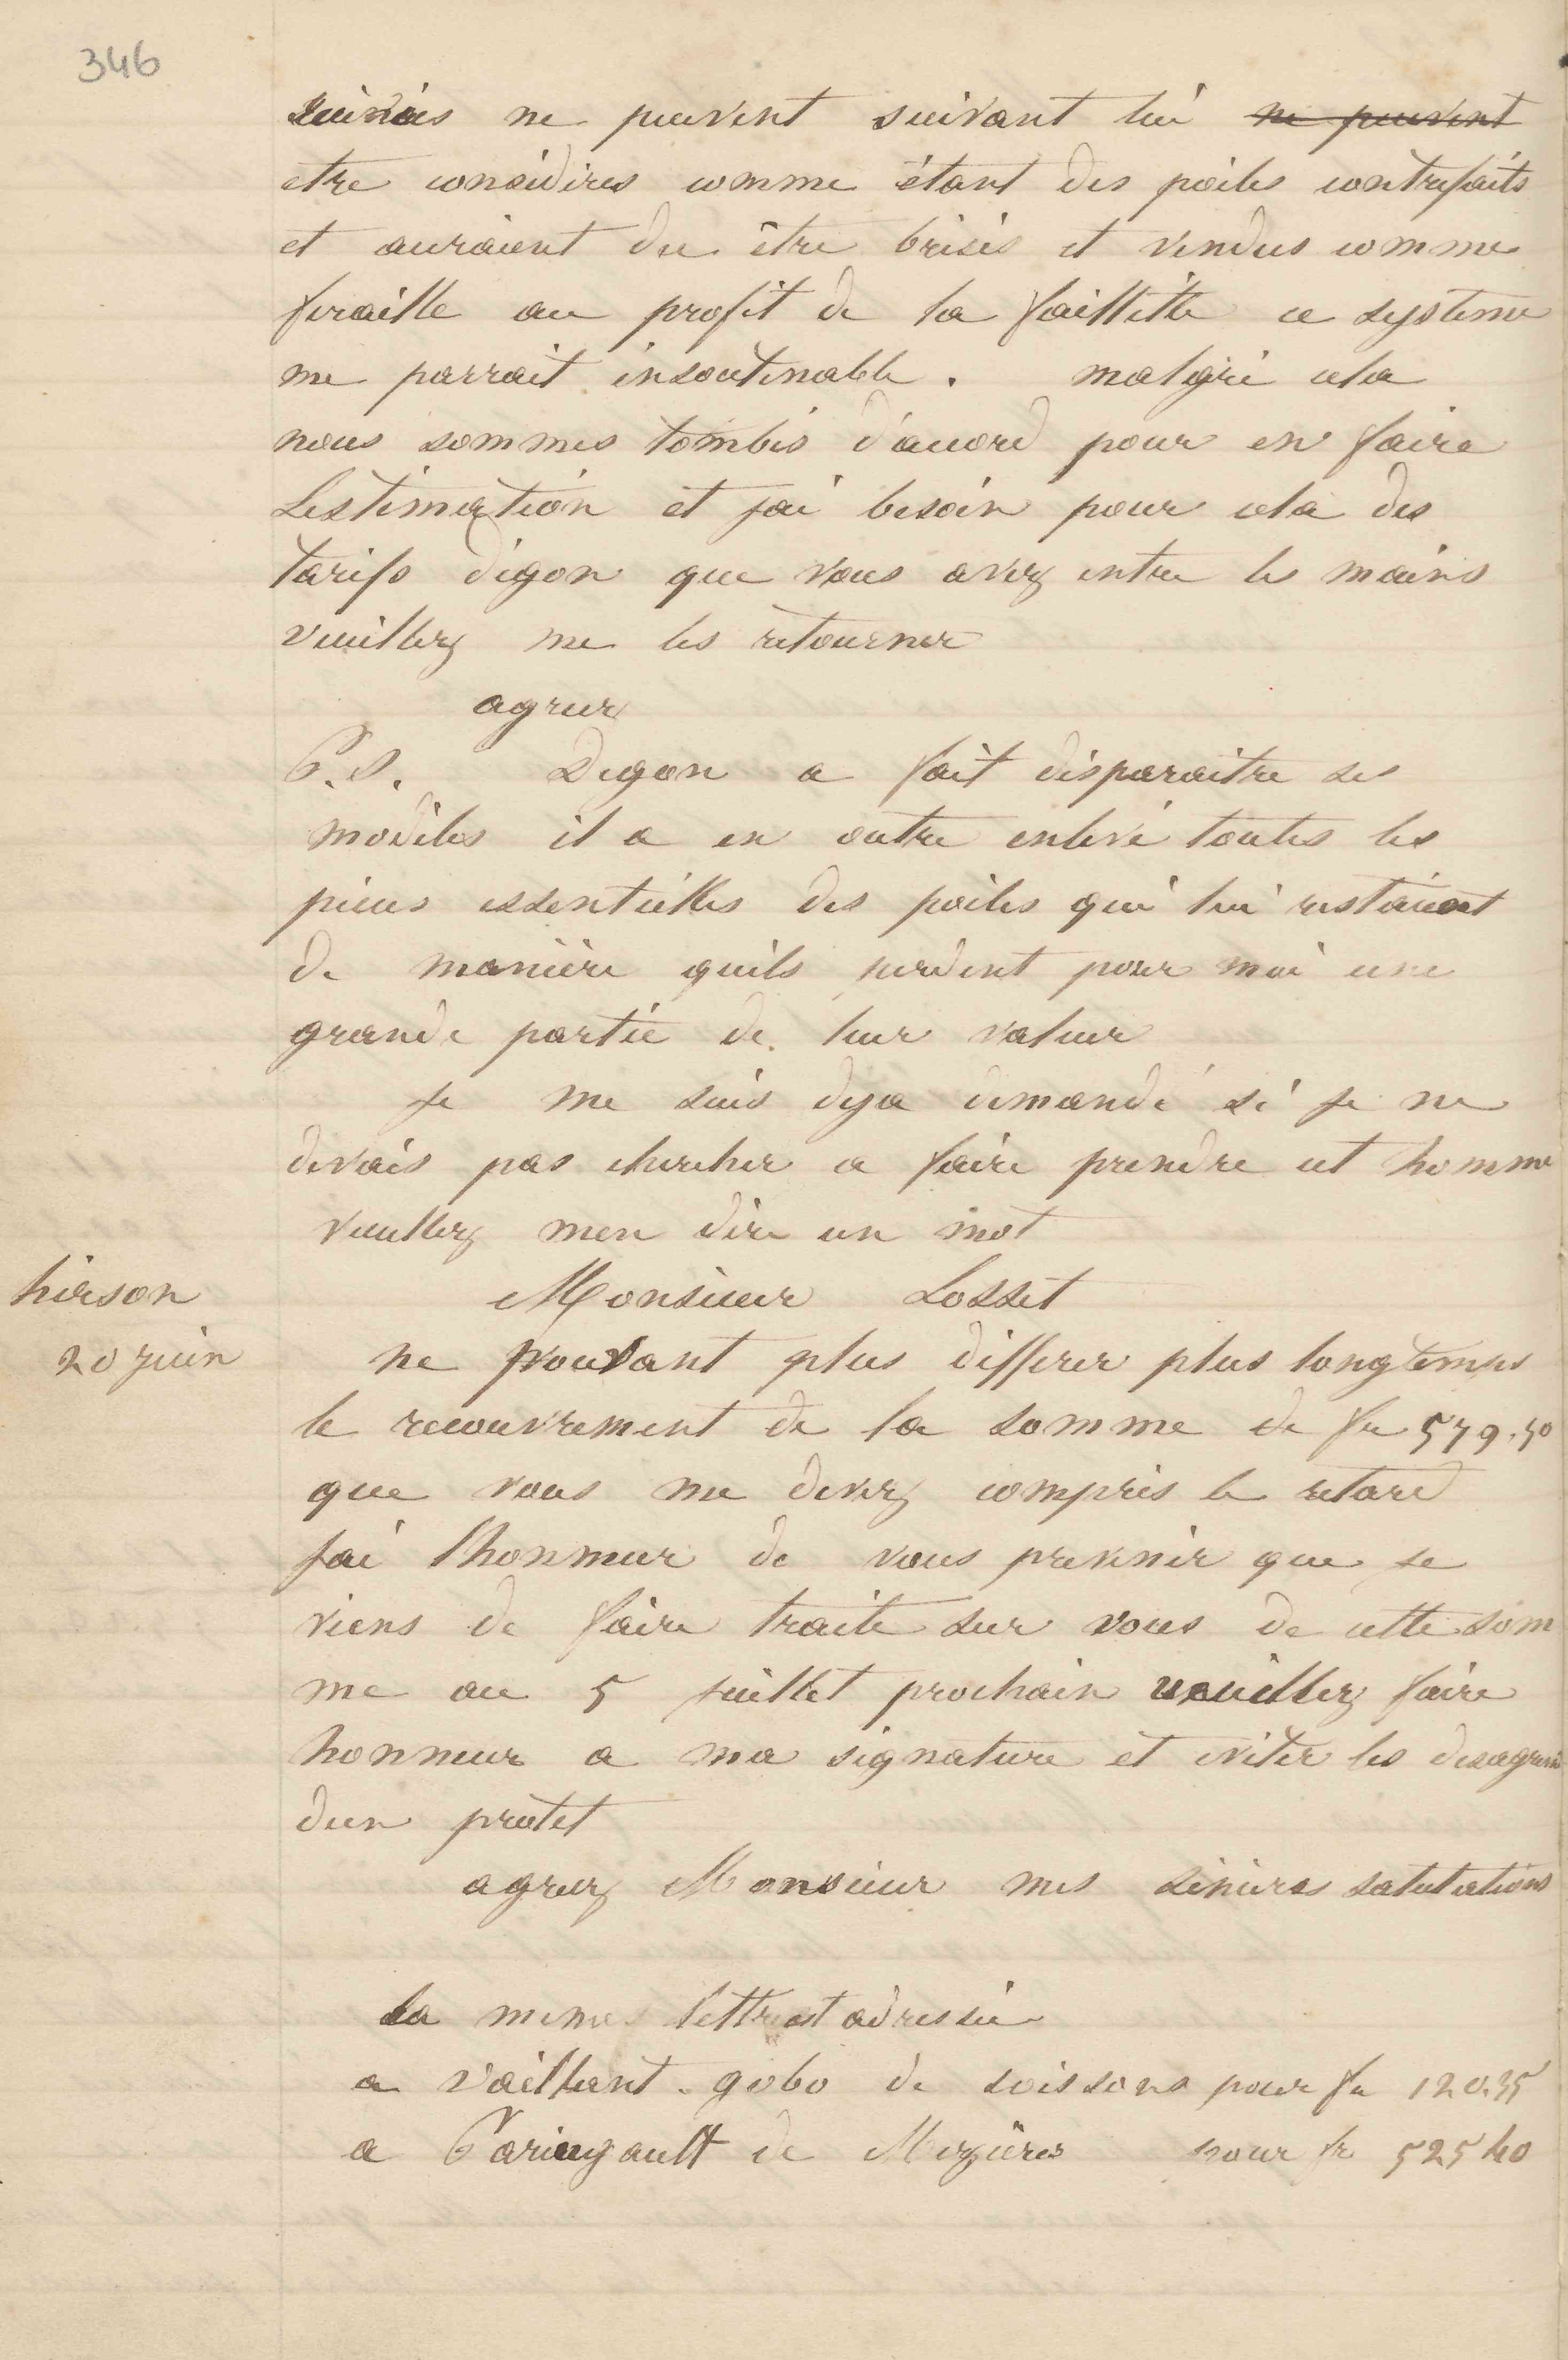 346
suivies ne peuvent suivant lui ne peuvent
etre considires comme étant des poiles contrefaits
et auraient du être brisés et vendus comme
feraille au profit de la faillitte ce systeme
me parrait insoutenable. malgré cela
nous sommes tombés d'accord pour en faire
Lestimation et jai besoin pour cela des
tarifs digon que vous avez entre les mains
veuillez me les retourner
agreez
P.S. Degon a fait disparaitre ses
modèles il a en outre enlevé toutes les
pieces essentielles des poiles qui lui restaient
de manière quils perdent pour moi une
grande partie de leur valeur
Je me suis deja demandé si je ne
devais pas chercher a faire prendre cet homme
veuillez men dire un mot
hirson
20 juin
Monsieur Losset
ne pouvant plus differer plus longtemps
le recouvrement de la somme de fr 579.50
que vous me devez compris le retard
jai lhonneur de vous prevenir que je
viens de faire traite sur vous de cette som
me au 5 juillet prochain veuillez faire
honneur a ma signature et eviter les desagrem
dun protet
agreez Monsieur mes sinceres salutations
La meme lettre est adressée
a Vaillant-gobo de soissons pour fr 120.35
a Paringault de Mezières pour fr 525 40